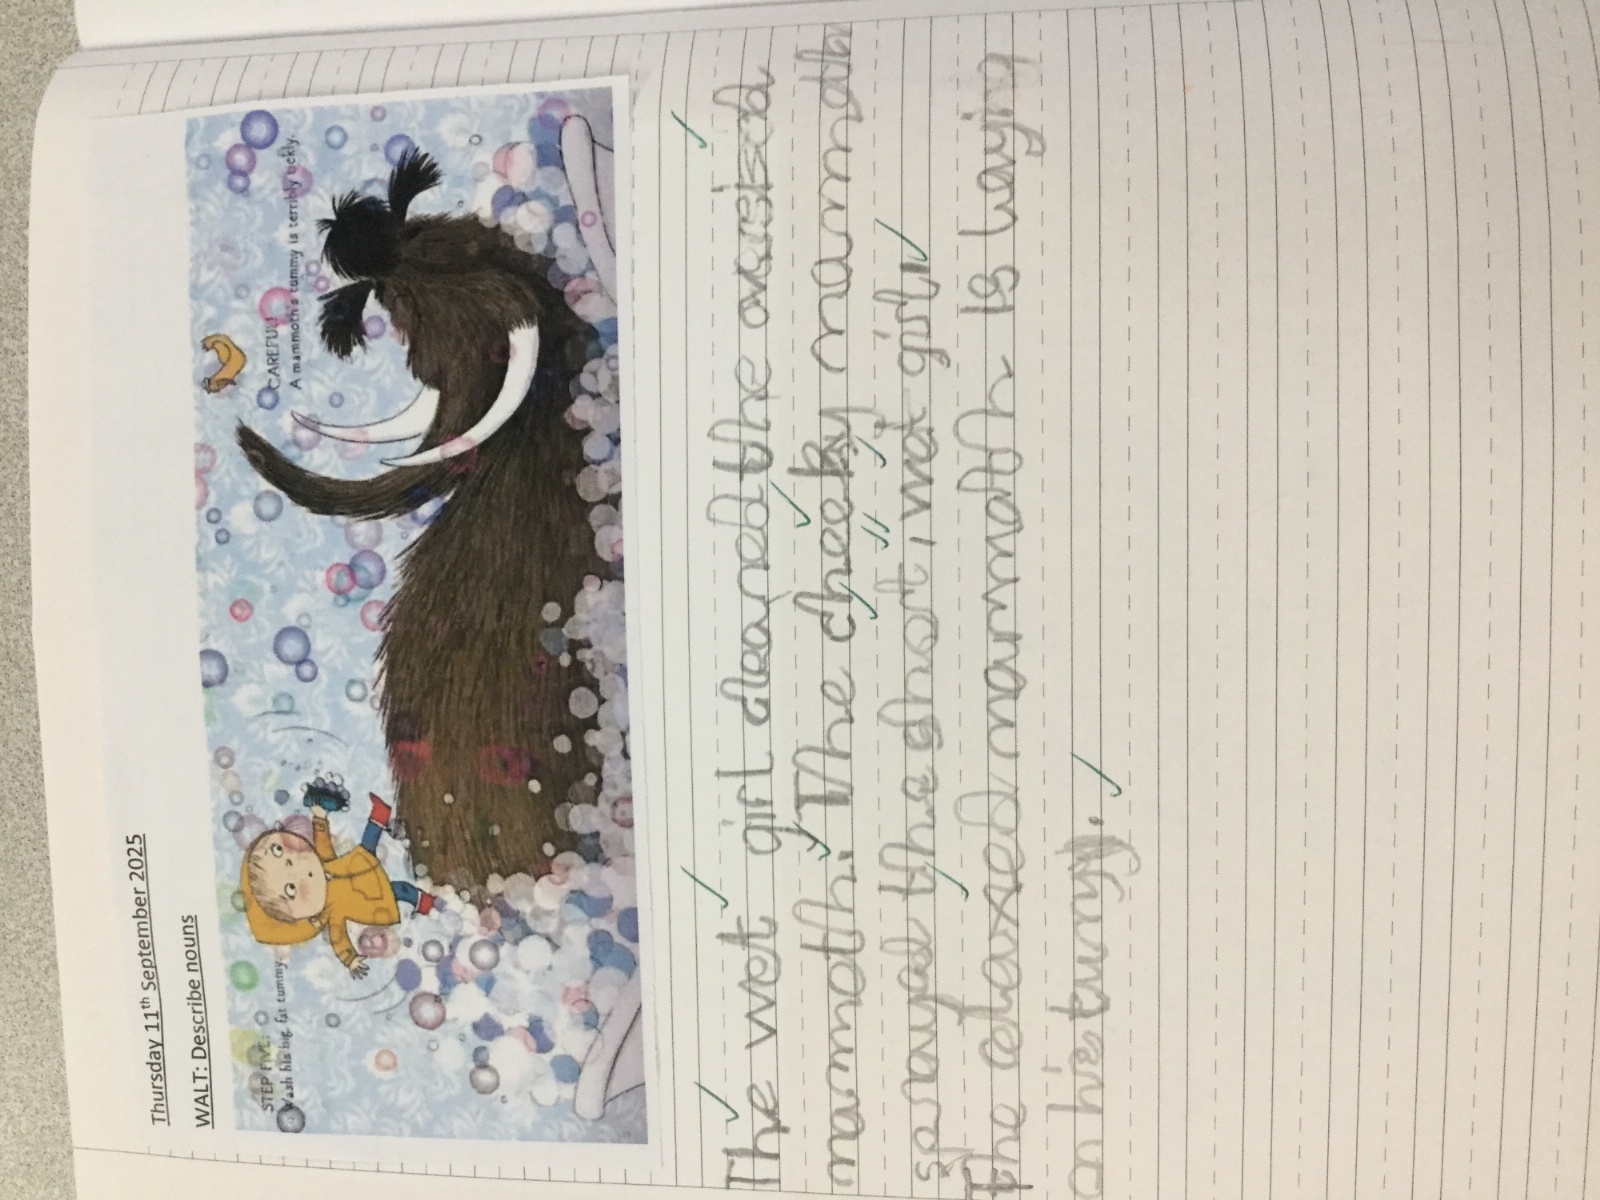 Thursday 11th September 2025
WALT: Describe nouns
STEP FIVE:
Wash his big, fat tummy.
CAREFUL!
A mammoth's tummy is terribly tickly.
The wet girl cleaned the
mammoth. The cheeky mammoth
sprayed the short, wet girl.
The relaxed mammoth is laying
on his tumy.